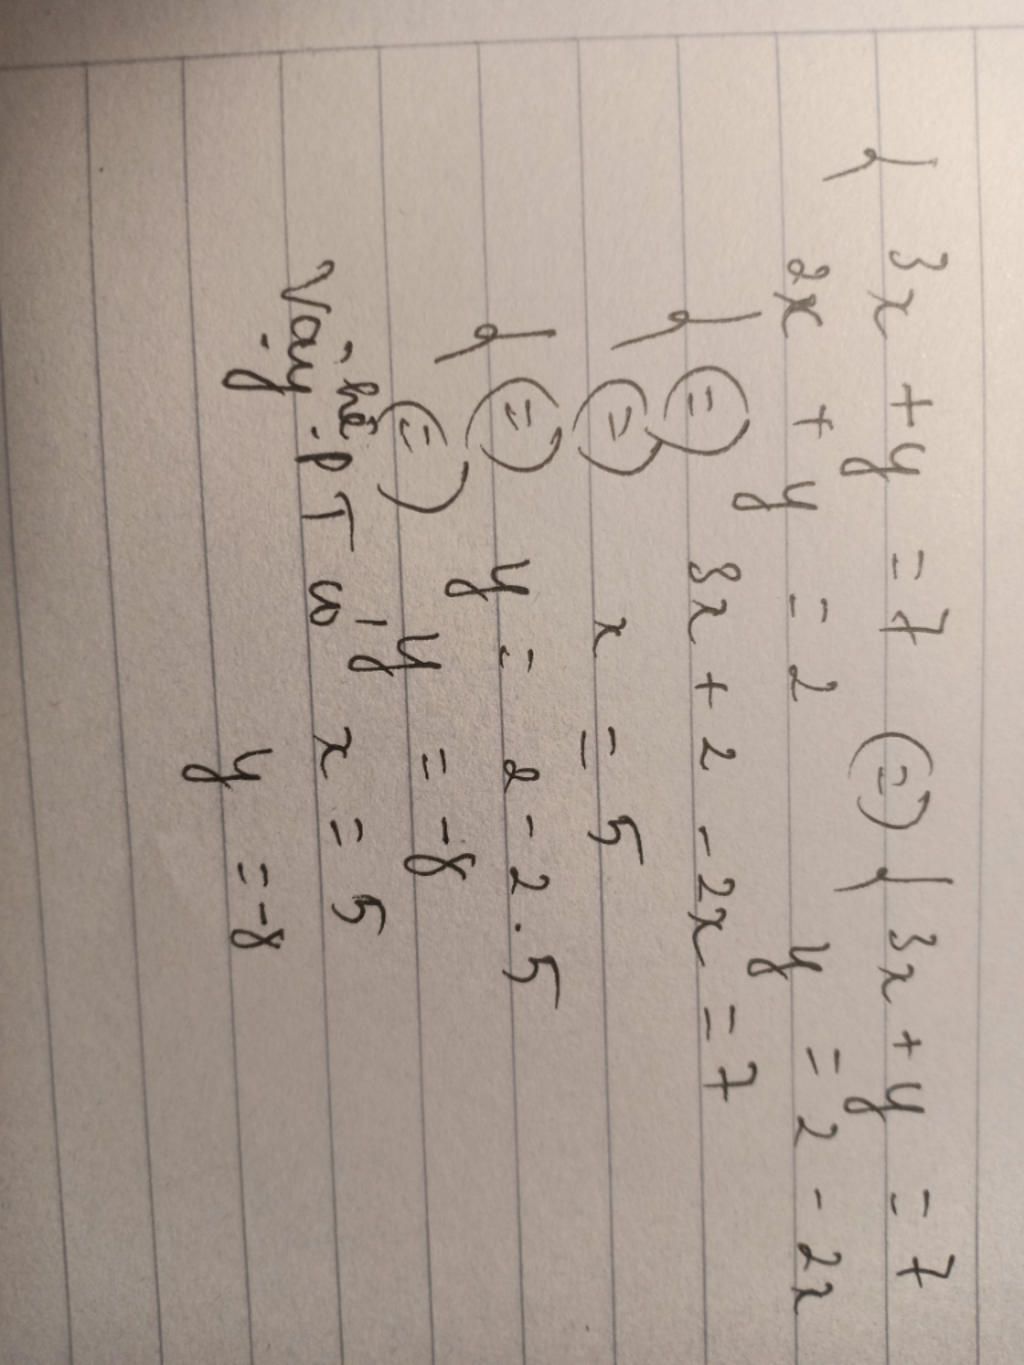 { 3x + y = 7 (=) { 3x + y = 7
2x + y = 2 y = 2 - 2x
{ (=) 3x + 2 - 2x = 7
(=) x = 5
{ (=) y = 2 - 2.5
(=) y = -8
Vậy hệ PT có x = 5
y = -8